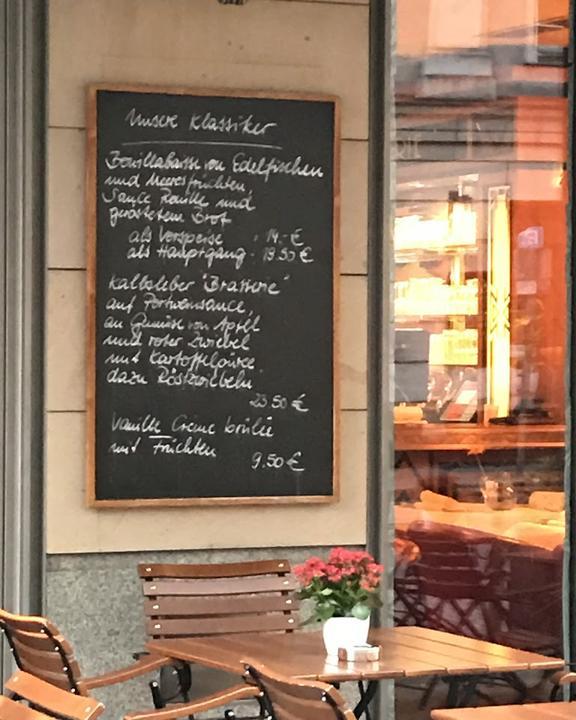 Unsere Klassiker
Bouillabaisse von Edelfischen
und Meeresfrüchten,
Sauce Rouille und
geröstetem Brot
als Vorspeise · 14,- €
als Hauptgang · 19.50 €
Kalbsleber "Brasserie"
auf Portweinsauce,
an Gemüse von Apfel
und roter Zwiebel
mit Kartoffelpüree,
dazu Röstzwiebeln
23.50 €
Vanille Crème brûlée
mit Früchten
9.50 €